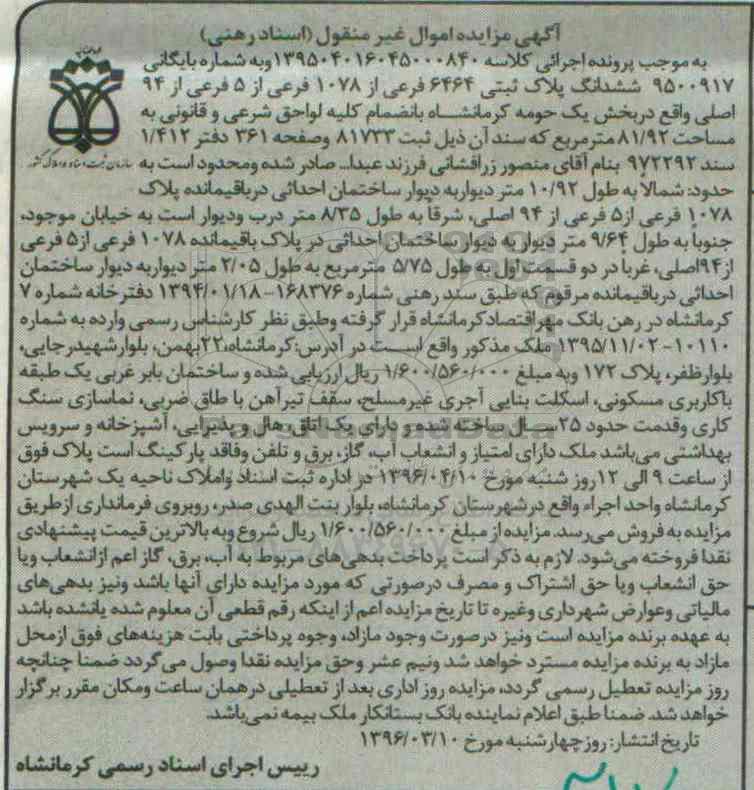 آگهی مزایده اموال غیر منقول (اسناد رهنی)
به موجب پرونده اجرائی کلاسه ۱۳۹۵۰۴۰۱۶۰۴۵۰۰۰۸۴۰ وبه شماره بایگانی
۹۵۰۰۹۱۷ ششدانگ پلاک ثبتی ۶۴۶۴ فرعی از ۱۰۷۸ فرعی از ۵ فرعی از ۹۴
اصلی واقع دربخش یک حومه کرمانشاه بانضمام کلیه لواحق شرعی و قانونی به
مساحت ۸۱/۹۲ مترمربع که سند آن ذیل ثبت ۸۱۷۳۳ وصفحه ۳۶۱ دفتر ۱/۴۱۲
سند ۹۷۲۲۹۲ بنام آقای منصور زرافشانی فرزند عبدا... صادر شده ومحدود است به
سازمان ثبت اسناد و املاک کشور
حدود: شمالاً به طول ۱۰/۹۲ متر دیواربه دیوار ساختمان احداثی درباقیمانده پلاک
۱۰۷۸ فرعی از۵ فرعی از ۹۴ اصلی، شرقاً به طول ۸/۳۵ متر درب ودیوار است به خیابان موجود،
جنوباً به طول ۹/۶۴ متر دیوار به دیوار ساختمان احداثی در پلاک باقیمانده ۱۰۷۸ فرعی از۵ فرعی
از۹۴اصلی، غربا در دو قسمت اول به طول ۵/۷۵ مترمربع به طول ۲/۰۵ متر دیواربه دیوار ساختمان
احداثی درباقیمانده مرقوم که طبق سند رهنی شماره ۱۶۸۳۷۶-۱۳۹۴/۰۱/۱۸ دفترخانه شماره ۷
کرمانشاه در رهن بانک مهراقتصادکرمانشاه قرار گرفته وطبق نظر کارشناس رسمی وارده به شماره
۱۰۱۱۰-۱۳۹۵/۱۱/۰۲ ملک مذکور واقع است در آدرس:کرمانشاه،۲۲بهمن، بلوارشهیدرجایی،
بلوارظفر، پلاک ۱۷۲ وبه مبلغ ۱/۶۰۰/۵۶۰/۰۰۰ ریال ارزیابی شده و ساختمان بابر غربی یک طبقه
باکاربری مسکونی، اسکلت بنایی آجری غیرمسلح، سقف تیرآهن با طاق ضربی، نماسازی سنگ
کاری وقدمت حدود ۲۵سال ساخته شده و دارای یک اتاق، هال و پذیرایی، آشپزخانه و سرویس
بهداشتی می‌باشد ملک دارای امتیاز و انشعاب آب، گاز، برق و تلفن وفاقد پارکینگ است پلاک فوق
از ساعت ۹ الی ۱۲ روز شنبه مورخ ۱۳۹۶/۰۴/۱۰ در اداره ثبت اسناد واملاک ناحیه یک شهرستان
کرمانشاه واحد اجراء واقع درشهرستان کرمانشاه، بلوار بنت الهدی صدر، روبروی فرمانداری ازطریق
مزایده به فروش می‌رسد. مزایده از مبلغ ۱/۶۰۰/۵۶۰/۰۰۰ ریال شروع وبه بالاترین قیمت پیشنهادی
نقدا فروخته می‌شود. لازم به ذکر است پرداخت بدهی‌های مربوط به آب، برق، گاز اعم ازانشعاب ویا
حق انشعاب ویا حق اشتراک و مصرف درصورتی که مورد مزایده دارای آنها باشد ونیز بدهی‌های
مالیاتی وعوارض شهرداری وغیره تا تاریخ مزایده اعم از اینکه رقم قطعی آن معلوم شده یانشده باشد
به عهده برنده مزایده است ونیز درصورت وجود مازاد، وجوه پرداختی بابت هزینه‌های فوق ازمحل
مازاد به برنده مزایده مسترد خواهد شد ونیم عشر وحق مزایده نقدا وصول می‌گردد ضمنا چنانچه
روز مزایده تعطیل رسمی گردد، مزایده روز اداری بعد از تعطیلی درهمان ساعت ومکان مقرر برگزار
خواهد شد. ضمنا طبق اعلام نماینده بانک بستانکار ملک بیمه نمی‌باشد.
تاریخ انتشار: روز چهارشنبه مورخ ۱۳۹۶/۰۳/۱۰
رییس اجرای اسناد رسمی کرمانشاه